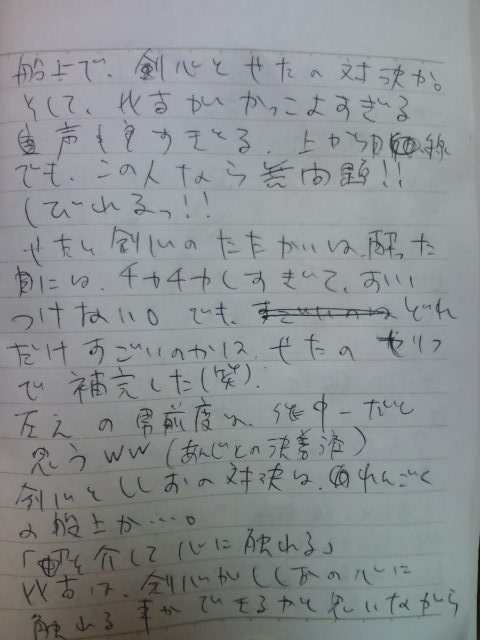 船上で、剣心とせたの対決か。
そして、比古がかっこよすぎる
声も良すぎる。上から目線
でも、この人なら無問題!!
しびれるっ!!
せたvs剣心のたたかいは、酔った
目には、チカチカしすぎて、おい
つけない。でも、どれ
だけすごいのかは、せたのセリフ
で補完した(笑)。
左之の男前度は、作中一だと
思うww(あんじとの決着後)
剣心とししおの対決は、れんごく
の船上か…。
「を介して心に触れる」
比古は、剣心がししおの心に
触れる事ができるかと思いながら